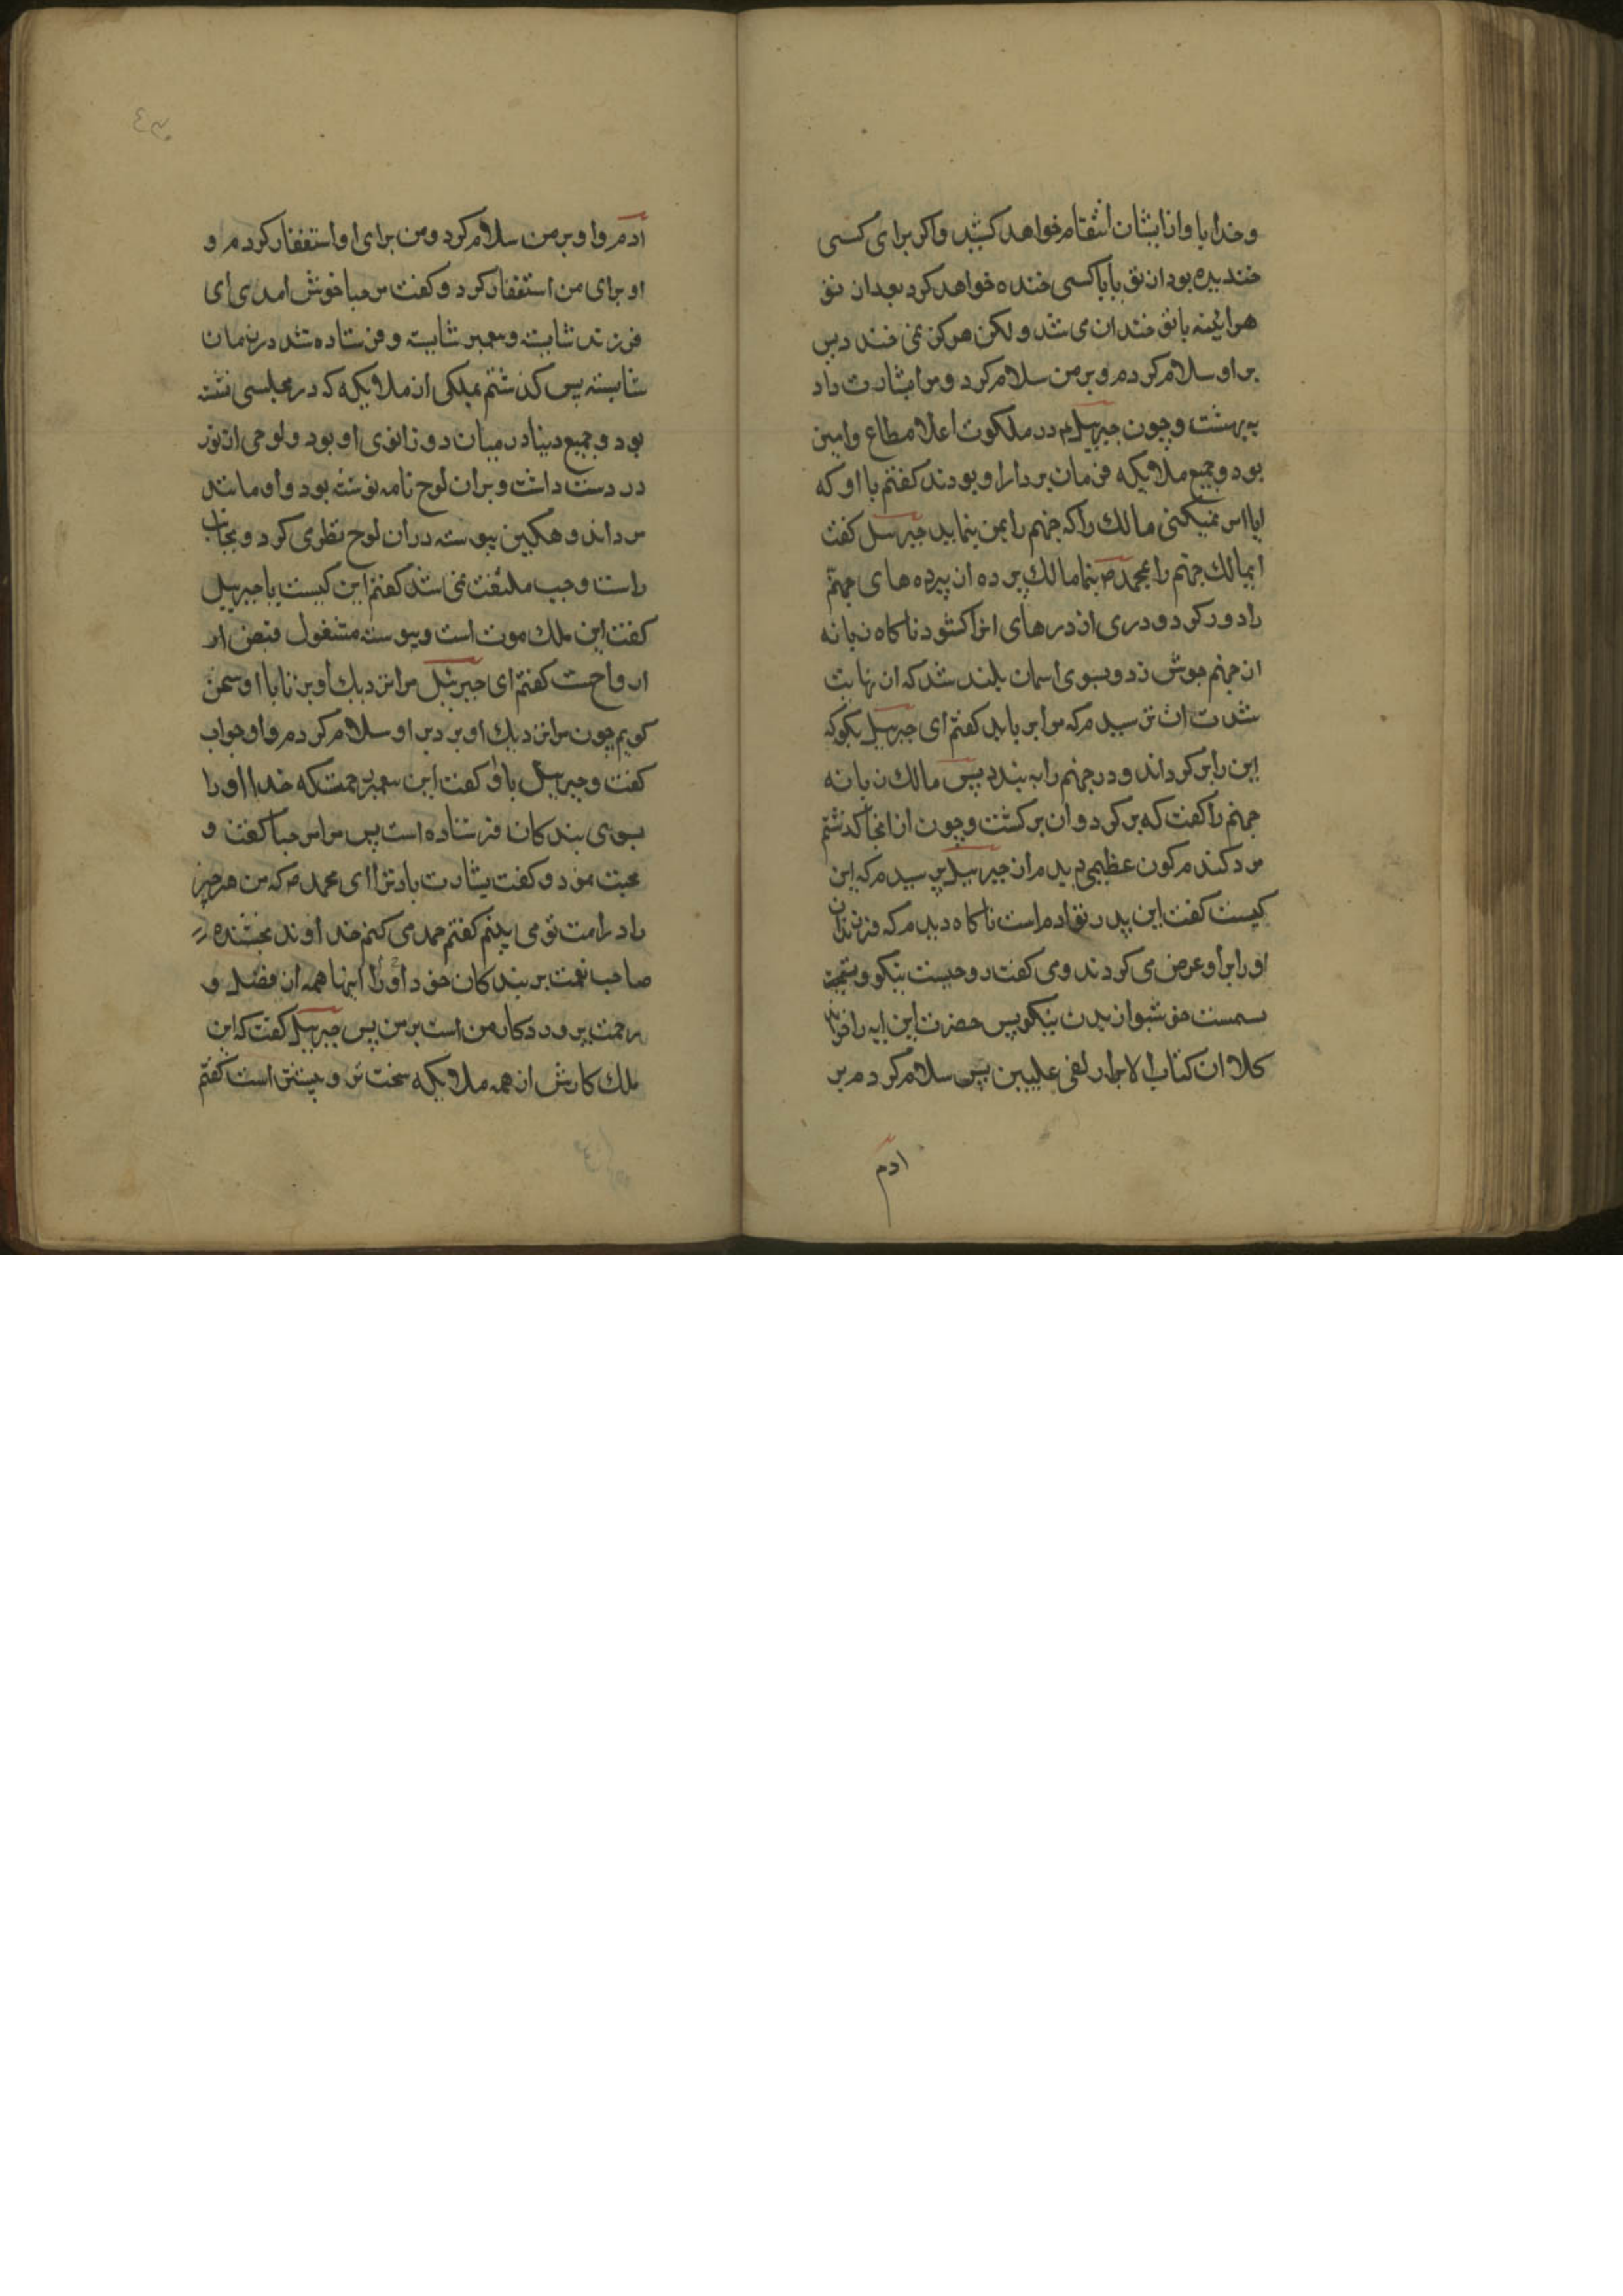 و خدا با و از ایشان انتقام خواهد کشید و اکر برای کسی
خندیده بود از تو یا با کسی خنده خواهد کرد بعد از تو
هرایئنه با تو خندان می شد و لکن هرکز نمی خندد پس
بر او سلام کردم و بر من سلام کرد و مرا بشارت داد
به بهشت و چون جبرییل در ملکوت اعلا مطاع و امین
بود و جمیع ملایکه فرمان بردار او بودند کفتم با او که
ایا امر نمیکنی مالک را که جهنم را بمن بنماید جبرییل کفت
ایمالک جهنم را بمحمد ص بنما مالک پرده از پرده های جهنم
را دور کرد و دری از درهای انرا کشود ناکاه زبانه
از جهنم جوش زد و بسوی اسمان بلند شد که از نهایت
شدت ان ترسیدم که مرا بر باید کفتم ای جبرییل بکو که
این را بر کرداند و در جهنم را به بندد پس مالک زبانه
جهنم را کفت که بر کرد و ان بر کشت و چون از انجا کذشتم
مرد کندم کون عظیمی دیدم از جبرییل پرسیدم که این
کیست کفت این پدر تو ادم است ناکاه دیدم که فرزندان
او را بر او عرض می کردند و می کفت روحیست نیکو و
نسیمست خوشبو از بدن نیکو پس حضرت این ایه را خواند
کلا ان کتاب الابرار لفی علیین پس سلام کردم بر
ادم
۴۳۰
ادم و او بر من سلام کرد و من برای او استغفار کردم و
او برای من استغفار کرد و کفت مرحبا خوش امدی ای
فرزند شایسته و پیغمبر شایسته و فرستاده شده در زمان
شایسته پس کذشتم بملکی از ملایکه که در مجلسی نشسته
بود و جمیع دنیا در میان دو زانوی او بود و لوحی از نور
در دست داشت و بر ان لوح نامه نوشته بود و او مانند
مرد اندوهکین پیوسته در ان لوح نظر می کرد و بجانب
راست و چپ ملتفت نمی شد کفتم این کیست یا جبرییل
کفت این ملک موت است و پیوسته مشغول قبض ار
ارواحست کفتم ای جبرئیل مرا نزدیک او بر تا با او سخن
کویم چون مرا نزدیک او برد بر او سلام کردم و او جواب
کفت و جبرییل باو کفت این پیغمبر رحمتست که خدا او را
بسوی بندکان فرستاده است پس مرا مرحبا کفت و
محبت نمود و کفت بشارت باد ترا ای محمد ص که من هر چیز
را در امت تو می بینم کفتم حمد می کنم خداوند بخشنده
صاحب نعمت بر بندکان خود را و اینها همه از فضل و
رحمت پروردکار من است بر من پس جبرییل کفت که این
ملک کارش از همه ملایکه سخت تر و بیشتر است کفتم